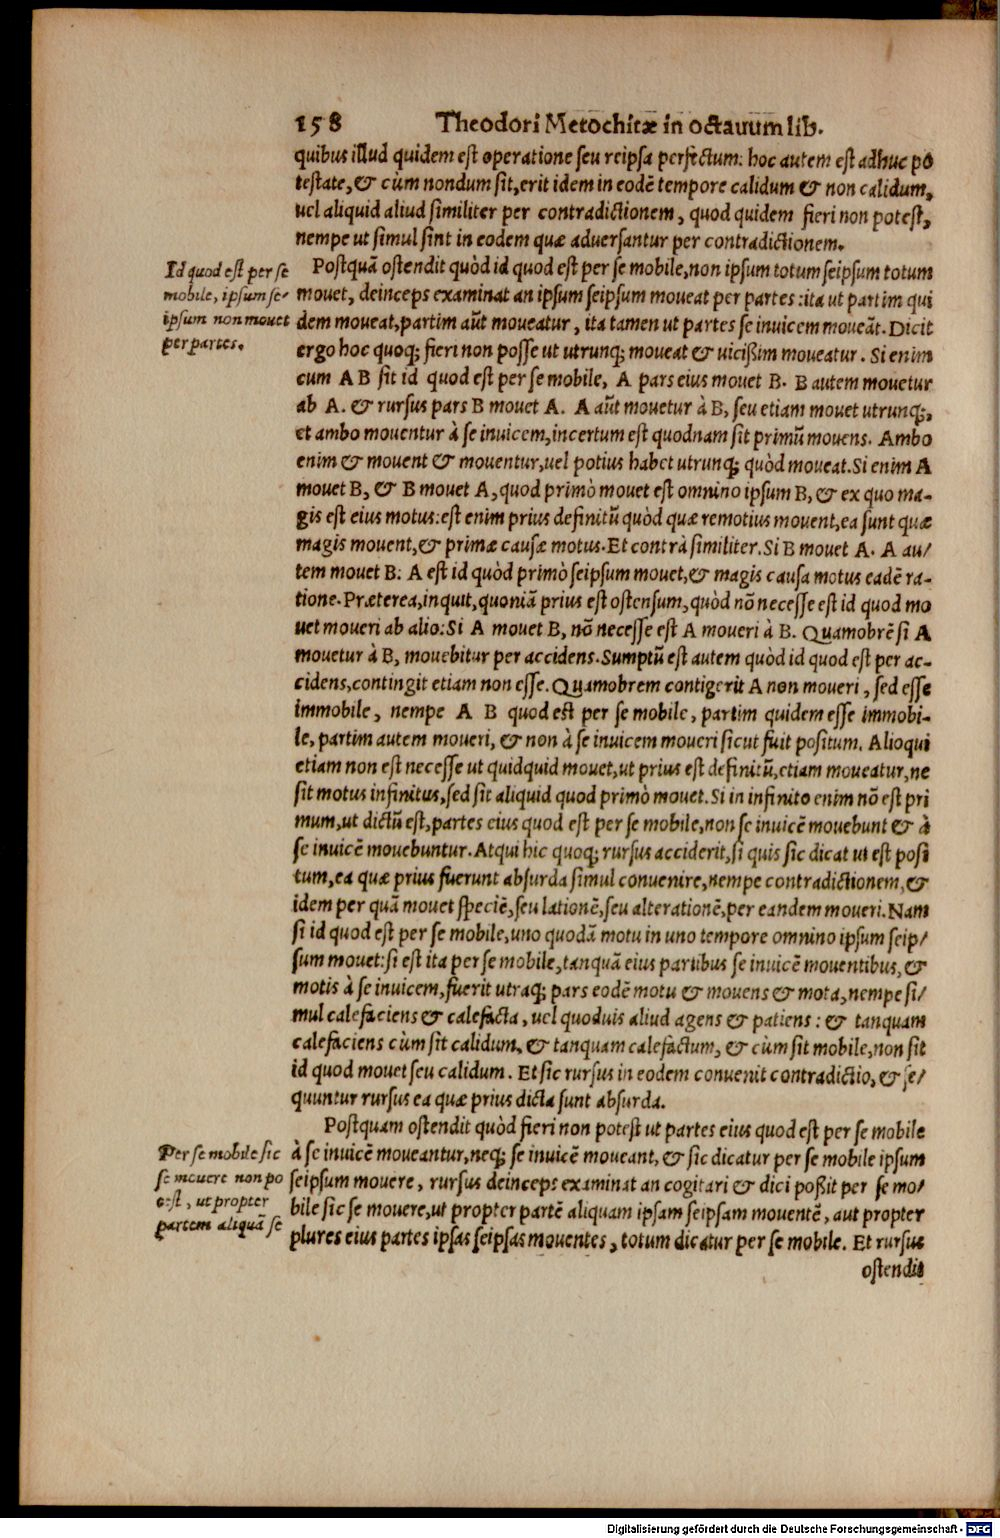 158 Theodori Metochitæ in octauum lib.
quibus illud quidem est operatione seu reipsa perfectum: hoc autem est adhuc po
testate, & cùm nondum sit, erit idem in eodē tempore calidum & non calidum,
uel aliquid aliud similiter per contradictionem, quod quidem fieri non potest,
nempe ut simul sint in eodem quæ aduersantur per contradictionem.
Id quod est per se
mobile, ipsum se-
ipsum non mouet
per partes.
Postquā ostendit quòd id quod est per se mobile, non ipsum totum seipsum totum
mouet, deinceps examinat an ipsum seipsum moueat per partes: ita ut partim qui
dem moueat, partim aūt moueatur, ita tamen ut partes se inuicem moueāt. Dicit
ergo hoc quoq; fieri non posse ut utrunq; moueat & uicißim moueatur. Si enim
cum A B sit id quod est per se mobile, A pars eius mouet B. B autem mouetur
ab A. & rursus pars B mouet A. A aūt mouetur à B, seu etiam mouet utrunq;,
et ambo mouentur à se inuicem, incertum est quodnam sit primū mouens. Ambo
enim & mouent & mouentur, uel potius habet utrunq; quòd moueat. Si enim A
mouet B, & B mouet A, quod primò mouet est omnino ipsum B, & ex quo ma-
gis est eius motus: est enim prius definitū quòd quæ remotius mouent, ea sunt quæ
magis mouent, & primæ causæ motus. Et contrà similiter. Si B mouet A. A au-
tem mouet B: A est id quòd primò seipsum mouet, & magis causa motus eadē ra-
tione. Præterea, inquit, quoniā prius est ostensum, quòd nō necesse est id quod mo
uet moueri ab alio: Si A mouet B, nō necesse est A moueri à B. Quamobrē si A
mouetur à B, mouebitur per accidens. Sumptū est autem quòd id quod est per ac-
cidens, contingit etiam non esse. Quamobrem contigerit A non moueri, sed esse
immobile, nempe A B quod est per se mobile, partim quidem esse immobi-
le, partim autem moueri, & non à se inuicem moueri sicut fuit positum. Alioqui
etiam non est necesse ut quidquid mouet, ut prius est definitū, etiam moueatur, ne
sit motus infinitus, sed sit aliquid quod primò mouet. Si in infinito enim nō est pri
mum, ut dictū est, partes eius quod est per se mobile, non se inuicē mouebunt & à
se inuicē mouebuntur. Atqui hic quoq; rursus acciderit, si quis sic dicat ut est posi
tum, ea quæ prius fuerunt absurda simul conuenire, nempe contradictionem, &
idem per quā mouet speciē, seu lationē, seu alterationē, per eandem moueri. Nam
si id quod est per se mobile, uno quodā motu in uno tempore omnino ipsum seip-
sum mouet: si est ita per se mobile, tanquā eius partibus se inuicē mouentibus, &
motis à se inuicem, fuerit utraq; pars eodē motu & mouens & mota, nempe si-
mul calefaciens & calefacta, uel quoduis aliud agens & patiens: & tanquam
calefaciens cùm sit calidum, & tanquam calefactum, & cùm sit mobile, non sit
id quod mouet seu calidum. Et sic rursus in eodem conuenit contradictio, & se-
quuntur rursus ea quæ prius dicta sunt absurda.
Postquam ostendit quòd fieri non potest ut partes eius quod est per se mobile
Per se mobile sic
se mouere non po
test, ut propter
partem aliquā se
à se inuicē moueantur, neq; se inuicē moueant, & sic dicatur per se mobile ipsum
seipsum mouere, rursus deinceps examinat an cogitari & dici poßit per se mo-
bile sic se mouere, ut propter partē aliquam ipsam seipsam mouentē, aut propter
plures eius partes ipsas seipsas mouentes, totum dicatur per se mobile. Et rursus
ostendit
Digitalisierung gefördert durch die Deutsche Forschungsgemeinschaft - DFG